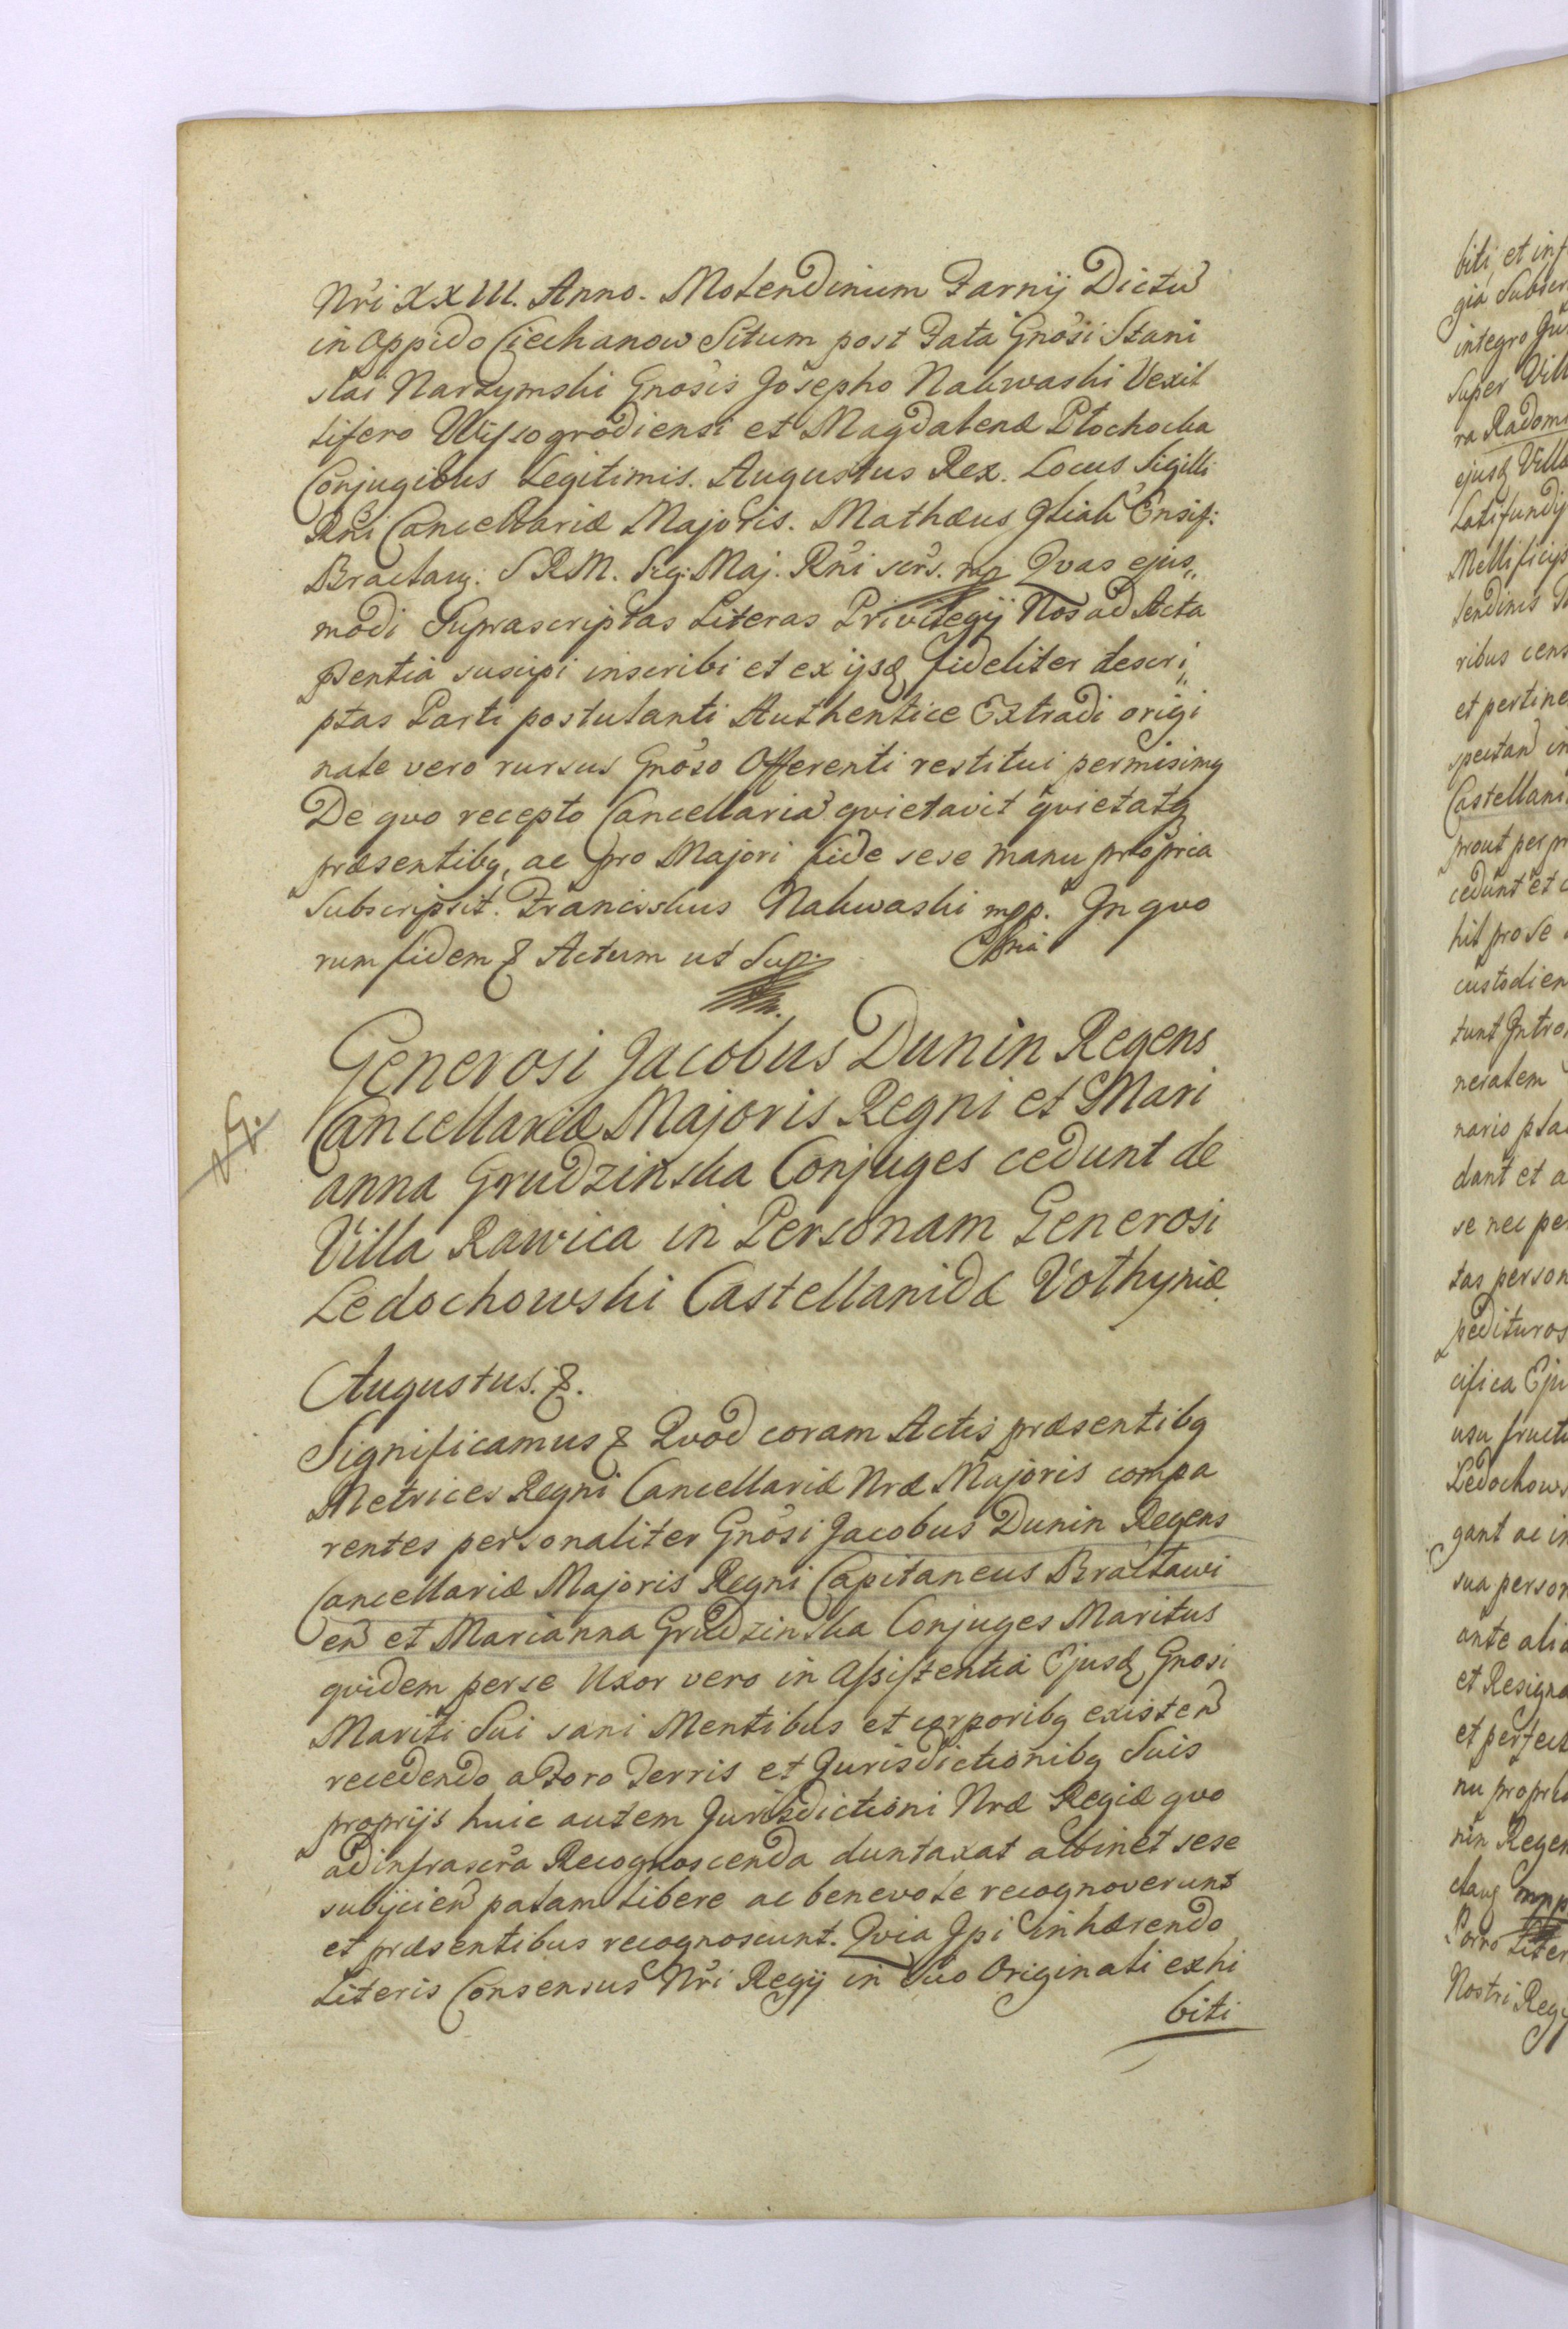 Nr̃i XXIII. Anno. Molendinum Farnij Dictũ
in Oppido Ciechanow Situm post Fata Gnõsi Stani
slai Narzymski Gnõsis Josepho Nakwaski Vexil
lifero Wissogrodiensi et Magdalenæ Płochocka
Conjugibus Legitimis. Augustus Rex. Locus Sigilli
Rñi Cancellariæ Majoris. Mathæus Gliak Ensif:
Braclaw: S R M. Sig: Maj. Rñi scr̃s. mp Qvas ejus„
modi Suprascriptas Literas Privilegij Nos ad Acta
pñtia suscipi inscribi et ex ijsq̃ fideliter descri„
ptas Parti postulanti Authentice Extradi origi
nale vero rursus Gnõso Offerenti restitui permisimq
De qvo recepto Cancellariã qvietavit qvietatq
præsentibq, ac pro Majori fide sese manu propria
Subscripsit. Franciskus Nakwaski mpp. In qvo
rum fidem & Actum ut Sup.
Generosi Jacobus Dunin Regens
Cancellariæ Majoris Regni et Mari
anna Grudzinska Conjuges cedunt de
Villa Rawica in Personam Generosi
Ledochowski Castellanidæ Volhyniæ
Augustus. &.
Significamus & Qvod coram Actis præsentibq
Metrices Regni Cancellariæ Nræ Majoris compa
rentes personaliter Gnõsi Jacobus Dunin Regens
Cancellariæ Majoris Regni Capitaneus Bracławi
eñ et Marianna Grudzinska Conjuges Maritus
qvidem per se Uxor vero in Assistentia Ejusq̃ Gnosi
Mariti Sui sani Mentibus et corporibq existeñ
recedendo a Foro Terris et Jurisdictionibq Suis
proprijs huic autem Jurisdictioni Nræ Regiæ qvo
ad infrascr̃a Recognoscenda duntaxat attinet sese
subijcieñ palam libere ac benevole recognoverunt
et præsentibus recognoscunt. Qvia Ipi inhærendo
Literis Consensus Nr̃i Regij in Suo Originali exhi
biti
biti, et inf
integro
Super Vil
ra Radom
ejusq̃ Villa
Latifundij
Mellificijs
lendinis
ribus cens
et pertine
in
Castellani
prout per pr
cedunt et
hil pro se
custodien
tunt Intro
neralem
nario
dant et a
se nec pe
tas person
pedituros
cifica Eju
usu fructu
Ledochows
gant ac in
sua person
ante alia
et Resigna
et perfect
nu propria
nin Regen
claw mpp
Porro Liter
Nostri Regij